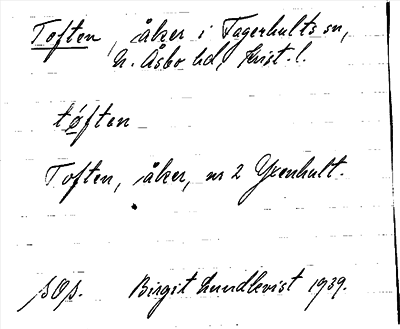 Toften, åker i Fagerhults sn,
N. Åsbo hd, Krist. l.
tøften
Toften, åker, nr 2 Yxenhult.
sOs. Birgit Lundkvist 1939.